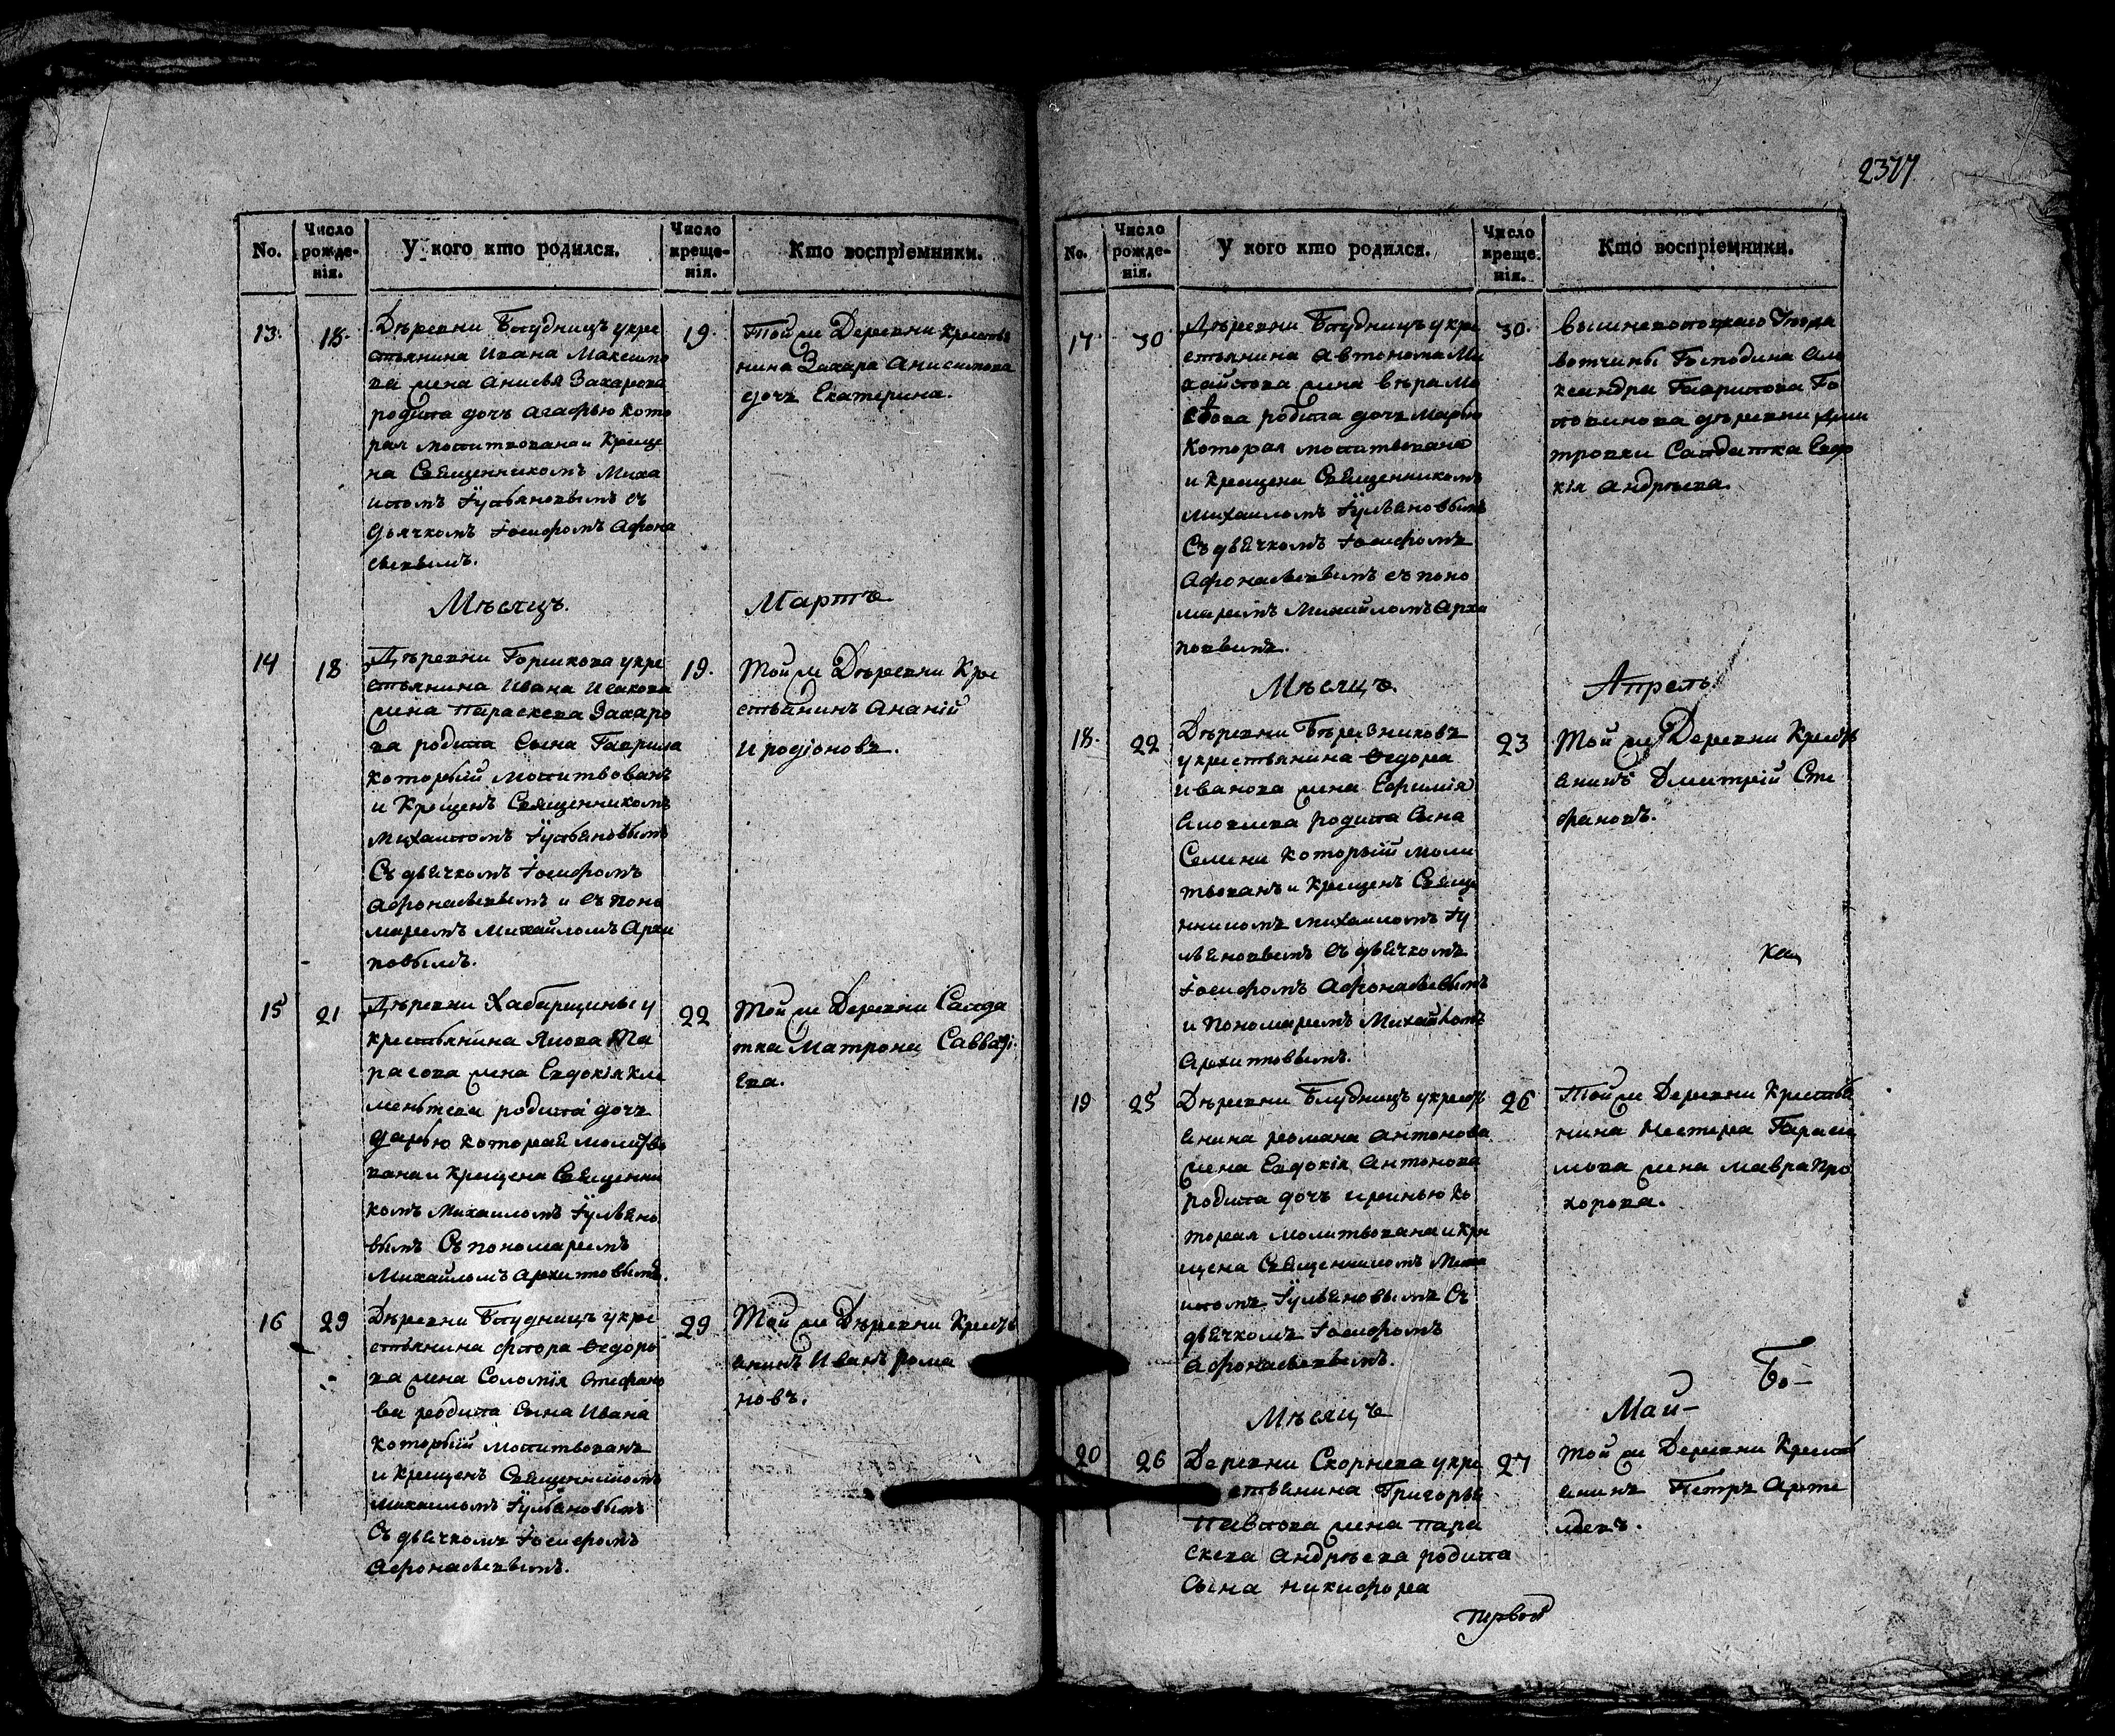 2377
No.
Число рожде-нія.
У кого кто родился.
Число креще-нія.
Кто воспріемники.
13.
18.
Дѣревни Блудницъ у кре
стьянина Ивана Максимо
ва жена Анисья Захарова
родила дочь Агафью кото
рая молитвована и Креще
на Священникомъ Миха
иломъ Іульяновымъ съ
Дьячкомъ Іосифомъ Афона
сьевымъ.
19.
Той же Деревни крестья
нина Захара Анисимова
дочь Екатерина.
Мѣсяцъ.
Мартъ
14
18
Дѣревни Горшкова у кре
стьянина Ивана Исакова
жена Параскева Захаро
ва родила Сына Гаврила
который молитвованъ
и Крещенъ Священникомъ
Михаиломъ Іульяновымъ
Съ дьячкомъ Іосифомъ
Афонасьевымъ и съ поно
маремъ Михайломъ Архи
повымъ.
19.
Той же Дѣревни Кре
стьянинъ Ананій
Иродіоновъ.
15
21
Дѣревни Хабарщины у
крестьянина Якова Та
расова жена Евдокія Кле
ментьева родила дочь
Дарью которая молитво
вана и Крещена Священни
комъ Михаиломъ Іульяно
вымъ Съ пономаремъ
Михайломъ Архиповымъ.
22
Той же Деревни Салда
тка Матрона Савватi
ева.
16
29
Дѣревни Блудницъ у кре
стьянина Флора Ѳедоро
ва жена Соломія Стефано
ва родила Сына Ивана
который молитвованъ
и Крещенъ Священникомъ
Михаиломъ Іульяновымъ
Съ дьячкомъ Іосифомъ
Афонасьевымъ.
29
Той же Дѣревни Кресть
янинъ Иванъ Рома
новъ.
No.
Число рожде-нія.
У кого кто родился.
Число креще-нія.
Кто воспріемники.
17.
30
Дѣревни Блудницъ у кре
стьянина Автонома Ми
хайлова жена Вѣра Мо
сѣова родила дочь Марью
Которая молитвована
и Крещена Священникомъ
Михаиломъ Іульяновымъ
Съ дьячкомъ Іосифомъ
Афонасьевымъ съ поно
маремъ Михайломъ Архи
повымъ.
30.
Вотчины Господина Але
ксандра Гаврилова Го
ловинова дѣревни Дми
тровки Салдатка Евдо
кія Андрѣева.
Мѣсяцъ.
Апрель
18.
22
Дѣревни Бѣрезниковъ
у крестьянина Ѳедора
Иванова жена Ефимія
Яковлева родила Сына
Семена который моли
твованъ и Крещенъ Свяще
нникомъ Михаиломъ Іу
льяновымъ съ дьячкомъ
Іосифомъ Афонасьевымъ
и Пономаремъ Михайломъ
Архиповымъ.
23
Той же Деревни Кресть
янинъ Дмитрій Сте
фановъ.
19
25
Дѣревни Блудницъ у кресть
янина Романа Антонова
жена Евдокія Антонова
родила дочь Иринью ко
торая молитвована и Кре
щена Священникомъ Миха
иломъ Іульяновымъ Съ
дьячкомъ Іосифомъ
Афонасьевымъ.
26
Той же Деревни Крестья
нина Нестера Гараси
мова жена Мавра Про
хорова.
Мѣсяцъ
Май-
20
26
Деревни Скорнева у кре
стьянина Григорья
Павлова жена Пара
скева Андрѣева родила
Сына Никифора
27
Той же Деревни Кресть
янинъ Петръ Арте
первой